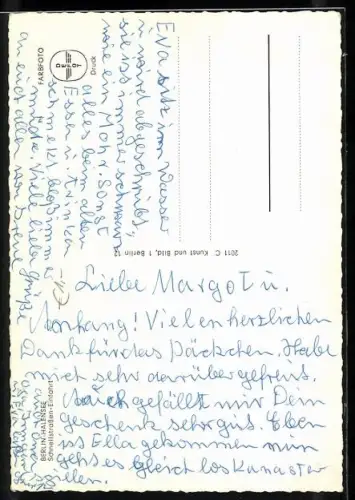 Liebe Margot u.
Anhang! Vielen herzlichen
Dank für das Päckchen. Habe
mich sehr darüber gefreut.
Auch gefällt mir Dein
Geschenk sehr gut. Eben
ist Ella gekommen nun
geht es gleich los Kanaster
spielen.
Eva sitzt im Wasser
u. wird abgeschrubt,
sie ist immer schwarz
wie ein Mohr. Sonst
alles beim alten
Essen u. Trinken
schmeckt bloß immer
müde. Viele liebe Grüße
an euch alle von
BERLIN-HALENSEE
Schnellstraßen-Einfahrt
2011 C. Kunst und Bild, 1 Berlin 12
FARBFOTO
DEFOT
Druck